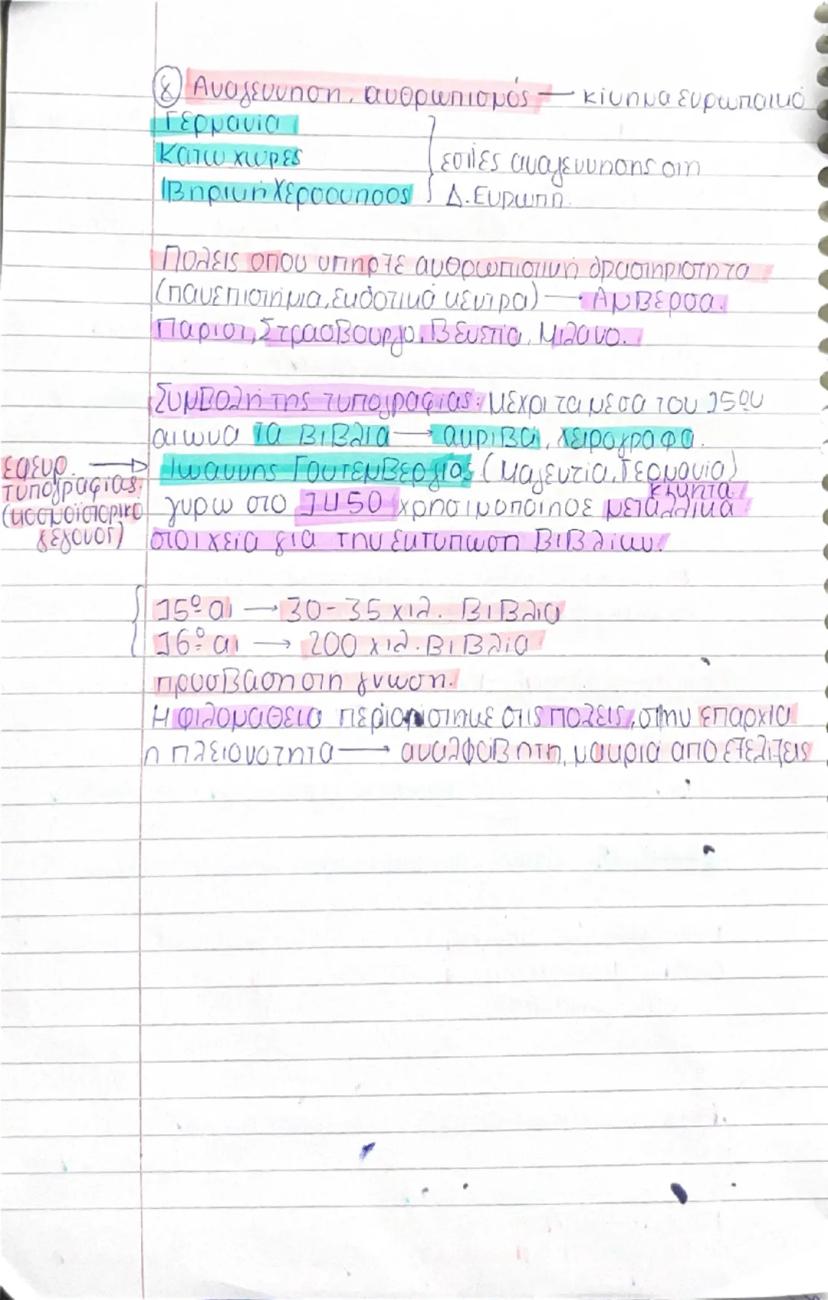 ⑧ Αναγεννηση, ανθρωπισμός — κίνημα ευρωπαικό
Γερμανία
Κατω χωρες
Ιβηρική Χερσονησος
εστίες αναγεννησης στη
Δ. Ευρωπη.
Πολεις οπου υπηρξε ανθρωπιστικη δραστηριοτητα
(πανεπιστήμια, εκδοτικά κεντρα) → Αμβερσα.
Παρισι, Στρασβουργο, Βενετια, Μιλανο.
Συμβολη της τυπογραφιας: Μεχρι τα μεσα του 15ου
αιωνα τα Βιβλια → ακριβα, χειρογραφα.
εφευρ. →
τυπογραφιας.
(κοσμοϊστορικο
γεγονος)
Ιωαννης Γουτεμβεργιος (Μαγεντια, Γερμανια)
κινητα
γυρω στο 1450 χρησιμοποιησε μεταλλικα
στοιχεια για την εκτυπωση Βιβλιων.
15ο αι → 30-35 χιλ. Βιβλια
16ο αι → 200 χιλ. Βιβλια
προσβαση στη γνωση.
Η φιλομαθεια περιοριστηκε στις πολεις, στην επαρχια
η πλειονοτητα → αναλφαβητη, μακρια απο εξελιξεις